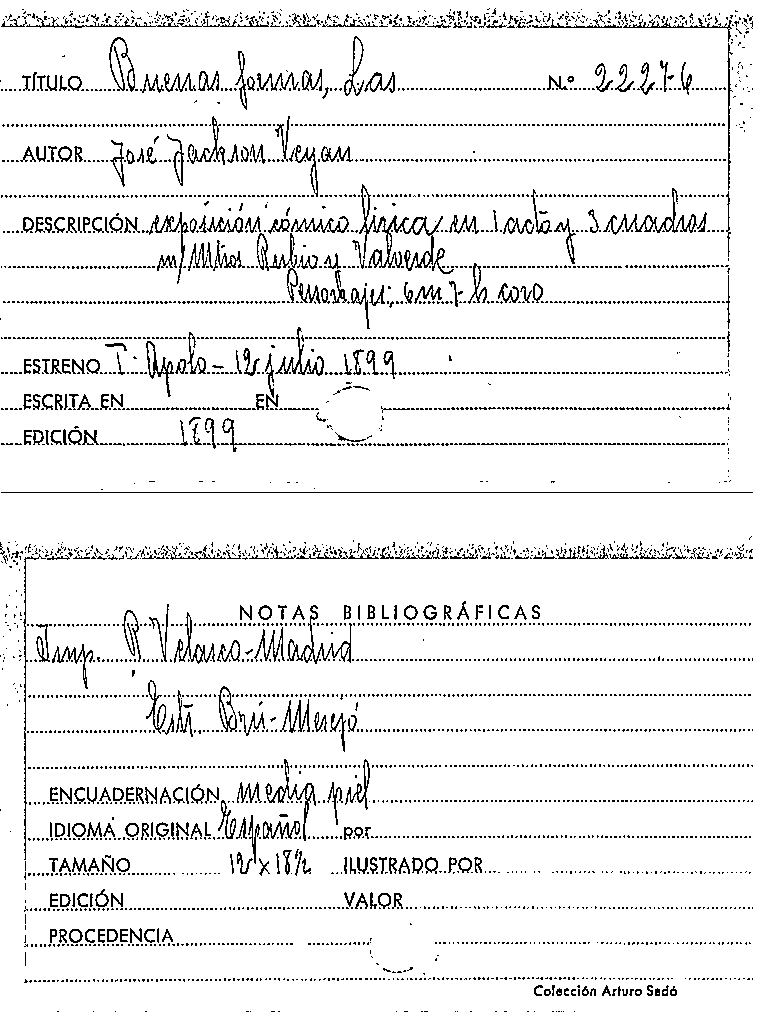 TÍTULO Buenas formas, Las N.º 22276
AUTOR José Jackson Veyan
DESCRIPCIÓN exposición cómico lírica en 1 acto y 3 cuadros
m/ Mtros Rubio y Valverde
Personajes: 6m 7h coro
ESTRENO T. Apolo - 12 julio 1899
ESCRITA EN EN
EDICIÓN 1899
NOTAS BIBLIOGRÁFICAS
Imp. R. Velasco - Madrid
Estr. Brú -
ENCUADERNACIÓN media piel
IDIOMA ORIGINAL Español por
TAMAÑO 12 x 18½ ILUSTRADO POR
EDICIÓN VALOR
PROCEDENCIA
Colección Arturo Sedó